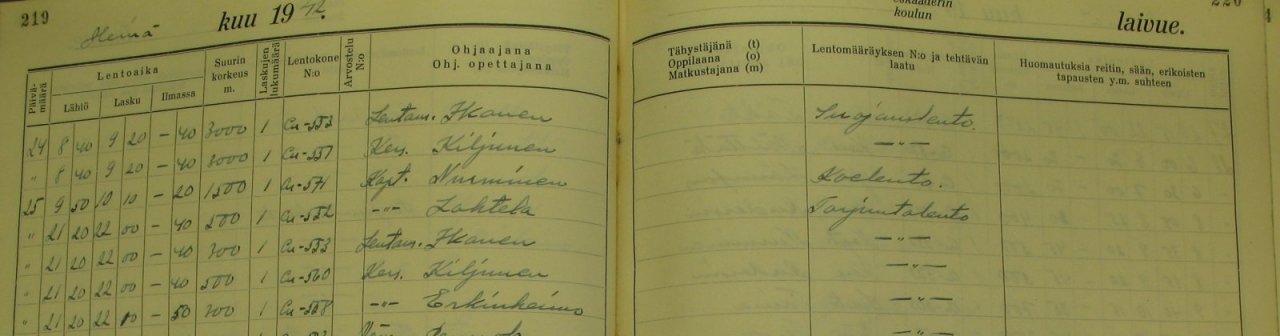 219
Heinä kuu 1942.
220
4
koulun laivue.
Päivä-määrä Lentoaika Suurin korkeus m. Laskujen lukumäärä Lentokone N:o Arvostelu N:o Ohjaajana Ohj. opettajana Tähystäjänä (t) Oppilaana (o) Matkustajana (m) Lentomääräyksen N:o ja tehtävän laatu Huomautuksia reitin, sään, erikoisten tapausten y.m. suhteen
Lähtö Lasku Ilmassa
24 8 40 9 20 — 40 3000 1 Cu-553 Lentom. Ikonen Suojauslento.
" 8 40 9 20 — 40 3000 1 Cu-557 Kers. Kiljunen —"—
25 9 50 10 10 — 20 1500 1 Cu-571 Kapt. Nurminen Koelento.
" 21 20 22 00 — 40 500 1 Cu-552 —"— Lahtela Torjuntalento
" 21 20 22 00 — 40 300 1 Cu-553 Lentom. Ikonen —"—
" 21 20 22 00 — 40 500 1 Cu-560 Kers. Kiljunen —"—
" 21 20 22 10 — 50 300 1 Cu-558 —"— Erkinheimo —"—
—"—